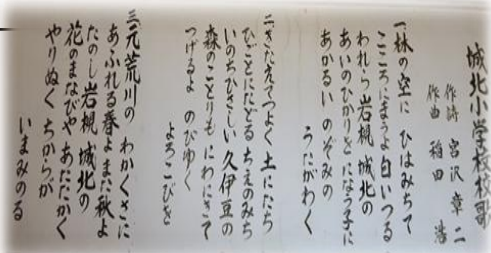 城北小学校校歌
作詩 宮沢章二
作曲 稲田 浩
一、林の空に ひはみちて
こころにまうよ 白いつる
われら岩槻 城北の
あいのひかりを になう子に
あかるい のぞみの
うたがわく
二、きたえてつよく 土にたち
ひごとにたどる ちえのみち
いのちひさしい 久伊豆の
森のことりも にわにきて
つげるよ のびゆく
よろこびを
三、元荒川の わかくさに
あふれる春よ また秋よ
たのし岩槻 城北の
花のまなびや あたたかく
やりぬく ちからが
いまみのる